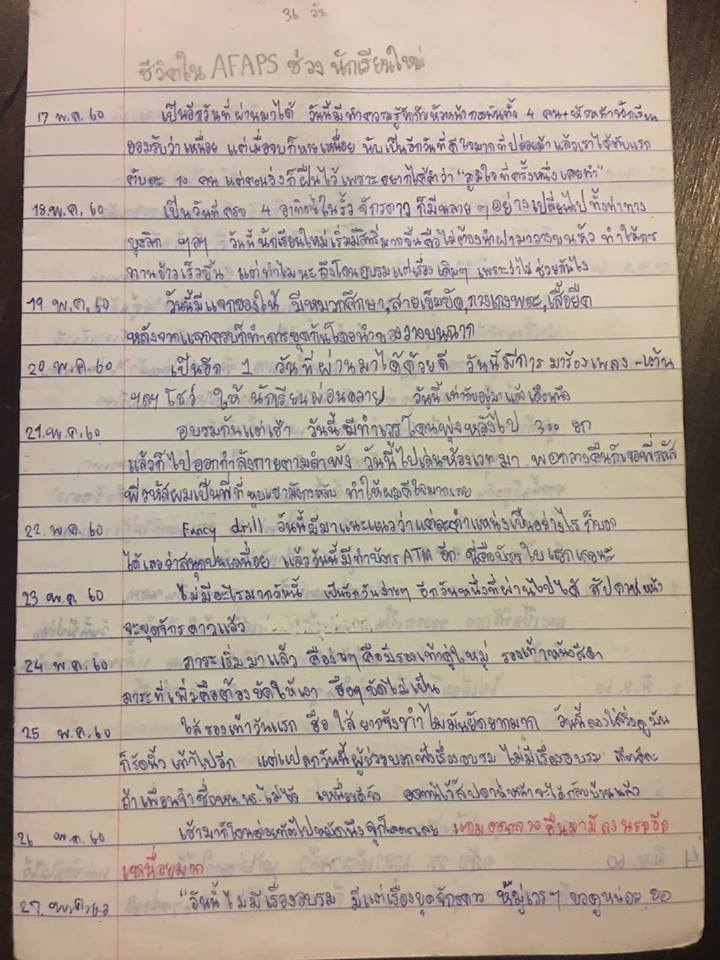 36 วัน
ชีวิตใน AFAPS ช่วง นักเรียนใหม่
17 พ.ค. 60 เป็นอีกวันที่ผ่านมาได้ วันนี้มีทำความรู้จักกับหัวหน้ากองพันทั้ง 4 คน+หัวหน้านักเรียน
ยอมรับว่าเหนื่อย แต่เมื่อจบก็หายเหนื่อย นับเป็นอีกวันที่ดีใจมากที่ปล่อยม้า แล้วเราได้แรก
คนละ 10 คน แต่ตอนวิ่งก็ฝืนไว้เพราะอยากได้คำว่า "ภูมิใจที่ครั้งหนึ่งเคยทำ"
18.พ.ค. 60 เป็นวันที่ครบ 4 อาทิตย์ในรั้วจักรดาว ก็มีหลายๆอย่างเปลี่ยนไป ทั้งท่าทาง
บุคลิก ฯลฯ วันนี้นักเรียนใหม่เริ่มมีสิทธิ์มากขึ้นคือไม่ต้องนำฝามาวางบนหัว ทำให้การ
ทานข้าวเร็วขึ้น แต่ทำไมนะถึงโดนอบรมแต่เรื่องเดิมๆ เพราะว่าไม่ช่วยกันไง
19 พ.ค. 60 วันนี้มีแจกของให้ มีหมวกศึกษา,สายเข็มขัด,กางเกงพละ,เสื้อยืด
หลังจากแจกครบก็ทำการขุดกันโดยนำของวางบนฉาก
20 พ.ค. 60 เป็นอีก 1 วันที่ผ่านมาได้ด้วยดี วันนี้มีการมาร้องเพลง-เต้น
ฯลฯ โชว์ ให้ นักเรียนผ่อนคลาย วันนี้
21.พ.ค. 60 อบรมกันแต่เช้า วันนี้มีทำเวร โดนพุ่งหลังไป 300 ยก
แล้วก็ไปออกกำลังกายตามลำพัง วันนี้ไปเล่นห้องเวทมา พอกลางคืนก็เจอพี่รหัส
พี่รหัสผมเป็นพี่ที่ ทำให้ผมดีใจมากเลย
22. พ.ค. 60 Fancy drill วันนี้มีมาแนะแนวว่าแต่ละตำแหน่งเป็นอย่างไร ก็บอก
ได้เลยว่าสนุกปนเหนื่อย แล้ววันนี้มีทำบัตร ATM อีก นี่คือบัตรใบแรกเลยนะ
23 พ.ค. 60 ไม่มีอะไรมากวันนี้ เป็นอีกวันง่ายๆ อีกวันหนึ่งที่ผ่านไปได้ สัปดาห์หน้า
จะขุดจักรดาวแล้ว
24 พ.ค. 60 ภาระเริ่มมาแล้ว คือง่ายๆ คือมีรองเท้าคู่ใหม่ รองเท้าหนังสีดำ
ภาระที่เพิ่มคือต้องขัดให้เงา ซึ่งๆขัดไม่เป็น
25 พ.ค. 60 ใส่รองเท้าวันแรก ซื่อ ใส่ยากจังทำไมมันยัดยากมาก วันนี้ลองใส่วิ่งดูมัน
ก็รัดนิ้วเท้าไปอีก แต่แปลกวันนี้ผู้ช่วยบอกหัวเรื่องอบรม ไม่มีเรื่องอบรม
ถ้าเพื่อนจำชื่อ ไม่ได้ เหนื่อยดีจัง อดทนไว้สัปดาห์หน้าจะได้กลับบ้านแล้ว
26 พ.ค. 60 เช้ามาก็โดน เลย แถม กลางคืนมามีลงนรกอีก
เหนื่อยมาก
27. พ.ค. 60 "วันนี้ไม่มีเรื่องอบรม มีแต่เรื่องขุดจักรดาว ให้หมู่เวรๆ ขอดูหน่อย ขอ